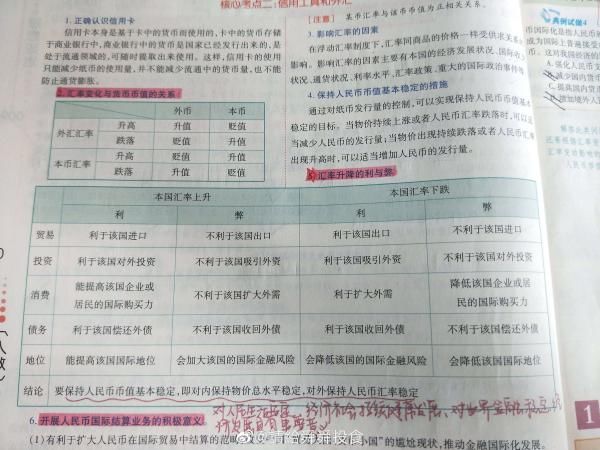 核心考点二:信用工具和外汇
1.正确认识信用卡
信用卡本身是基于卡中的货币而使用的,卡中的货币存储
于商业银行中,商业银行中的货币是国家已经发行出来的,是
处于流通领域的,可随时提取出来使用。这样,信用卡的使用
只能减少纸币的使用量,并不能减少流通中的货币量,也不能
防止通货膨胀。
2.汇率变化与货币币值的关系
外币 本币
外汇汇率 升高 升值 贬值
跌落 贬值 升值
本币汇率 升高 贬值 升值
跌落 升值 贬值
【注意】 某币汇率与该币币值为正相关关系。
3.影响汇率的因素
在浮动汇率制度下,汇率同商品的价格一样受供求关系的
影响。影响汇率的因素主要有本国的经济发展状况、国际收支
状况、通货状况、利率水平、汇率政策、重大的国际政治事件等。
4.保持人民币币值基本稳定的措施
通过对纸币发行量的控制,可以实现保持人民币币值基本
稳定的目标。当物价持续上涨或者人民币汇率跌落时,可以适
当减少人民币的发行量;当物价出现持续跌落或者人民币汇率
出现升高时,可以适当增加人民币的发行量。
5.汇率升降的利与弊
本国汇率上升 本国汇率下跌
利 弊 利 弊
贸易 利于该国进口 不利于该国出口 利于该国出口 不利于该国进口
投资 利于该国对外投资 不利于该国吸引外资 利于该国吸引外资 不利于该国对外投资
消费 能提高该国企业或居民的国际购买力 不利于该国扩大外需 利于扩大外需 降低该国企业或居民的国际购买力
债务 利于该国偿还外债 不利于该国收回外债 利于该国收回外债 不利于该国偿还外债
地位 能提高该国国际地位 会加大该国的国际金融风险 会降低该国的国际金融风险 会降低该国国际地位
结论 要保持人民币币值基本稳定,即对内保持物价总水平稳定,对外保持人民币汇率稳定
6.开展人民币国际结算业务的积极意义。
(1)有利于扩大人民币在国际贸易中结算的范
小国”的尴尬现状,推动金融国际化发展。
典例试做4
1